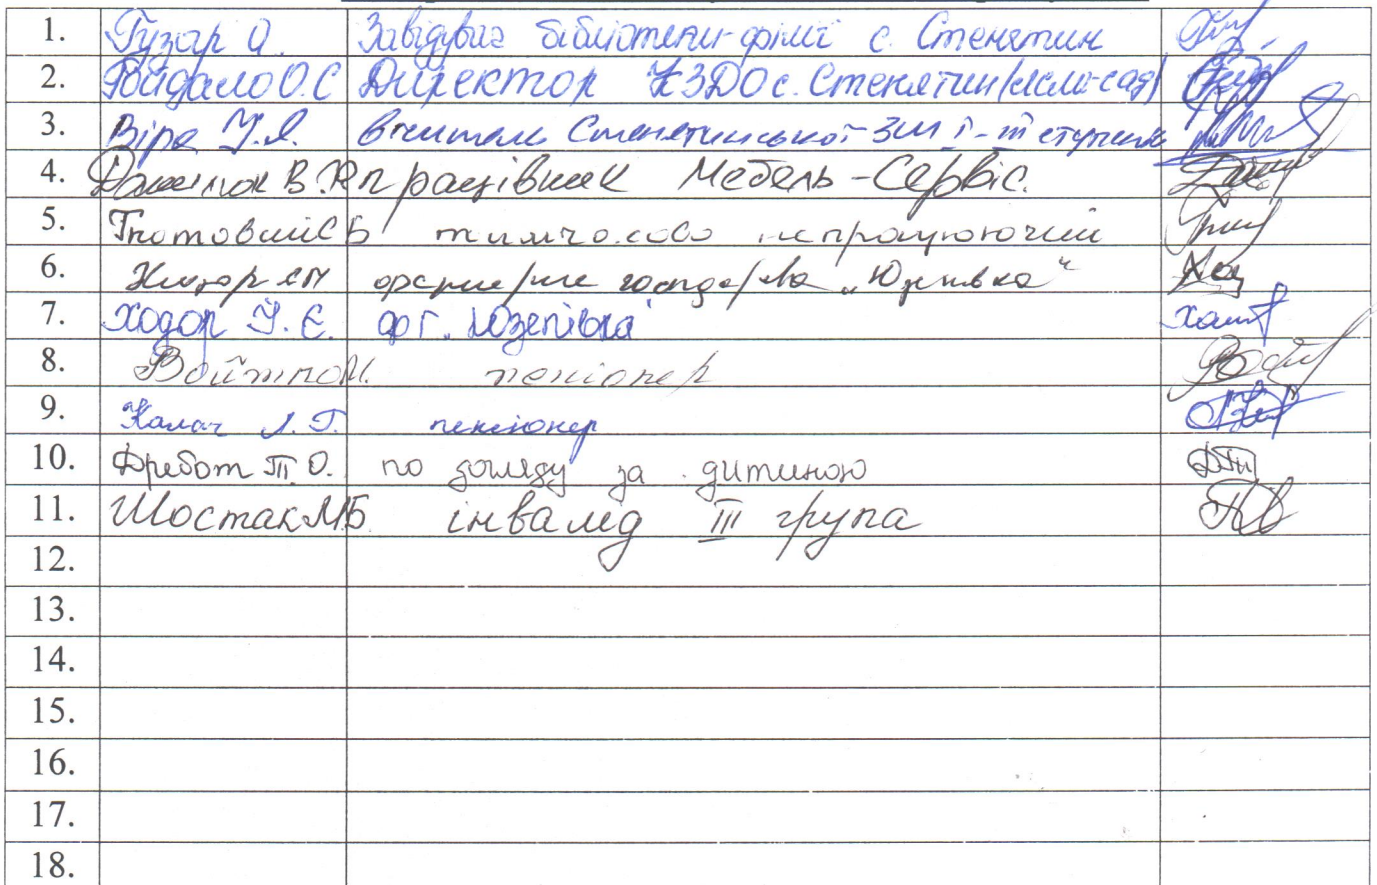 1. Гузар О. Завідувач бібліотеки-філії с. Стенятин
2. Гайдало О.С Директор КЗДО с. Стенятин (ясла-сад)
3. Віра У.Я. вчитель Стенятинської ЗШ І-ІІІ ступенів
4. В. працівник Мебель-Сервіс.
5. тимчасово непрацюючий
6. господарства
7. Ходор У. Є. ФГ. "Юзепівка"
8. пенсіонер
9. Калач Л. Г. пенсіонер
10. Дребот Т. О. по догляду за дитиною
11. Шостак М.Б. інвалід ІІІ група
12.
13.
14.
15.
16.
17.
18.